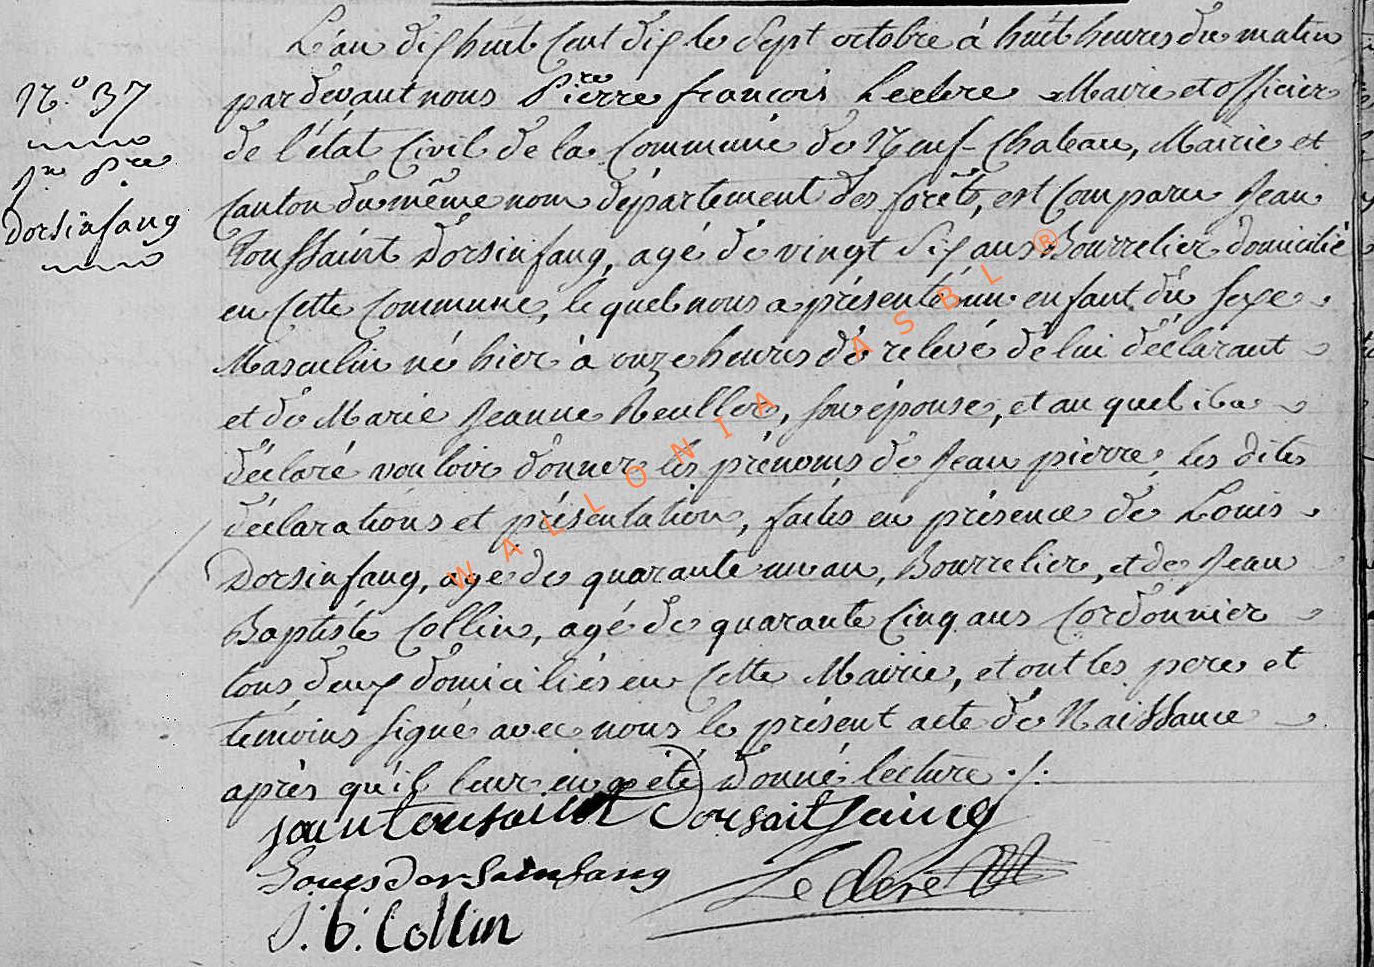 L'an dix huit Cent dix le Sept octobre à huit heures du matin
par devant nous Pierre françois Leclere Maire et officier
de l'état Civil de la Commune de Neuf-Chateau, Mairie et
Canton du même nom département des forêts, est Comparu Jean
Toussaint Dorsinfang, agé de vingt Six ans Bourrelier domicilié
en Cette Commune, le quel nous a présenté un enfant du Sexe
Masculin né hier à onze heures de relevé de lui déclarant
et de Marie Jeanne Reuller, son épouse, et au quel il a
déclaré vouloir donner les prénoms de Jean pierre, les dites
déclarations et présentation, faites en présence de Louis
Dorsinfang, agé de quarante un an, Bourrelier, et de Jean
Baptiste Collin, agé de quarante Cinq ans Cordonnier
tous deux domiciliés en Cette Mairie, et ont les pere et
témoins signé avec nous le présent acte de Naissance
après qu'il leur en a été donné lecture ./.
N.° 37
Jn pre
Dorsinfang
jean tousaint dorsaitfaing
Louis dorsainfang
Leclere
J. b. Collin
WALLONIA ASBL ®